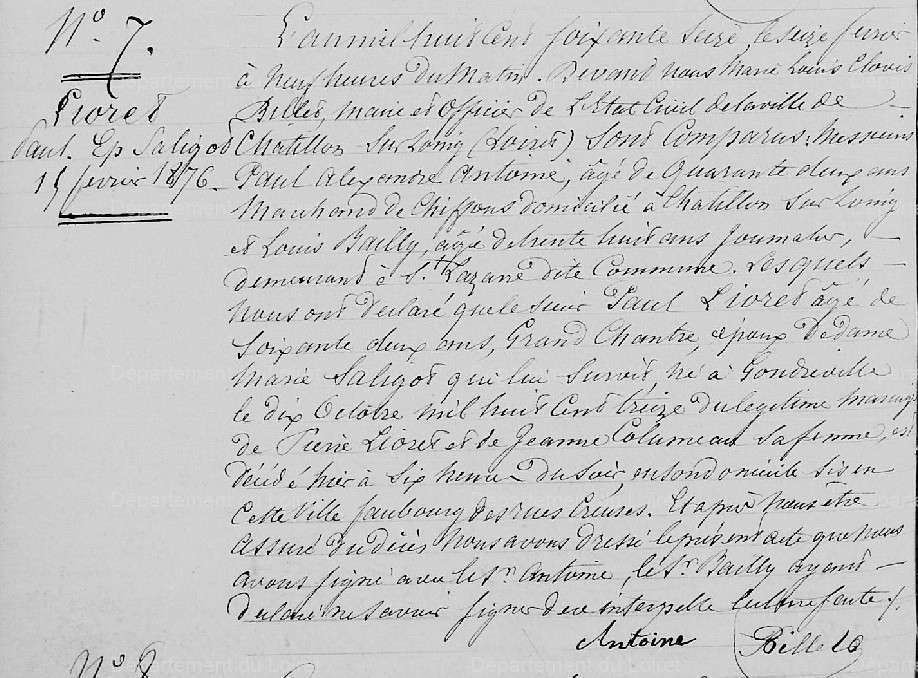 N° 7.
Lioret
Paul. Ep Saligot
15 fevrier 1876.
L'an mil huit Cent soixante Seize, le seize fevrier
à Neuf heures Du Matin. Devant nous Marie Louis Clovis
Billet, Maire et Officier de L'Etat Civil de la ville de
Chatillon Sur Loing (Loiret) Sont Comparus: Messieurs
Paul Alexandre Antoine, âgé de Quarante deux ans
Marchand de Chiffons domicilié à Chatillon Sur Loing
et Louis Bailly, âgé de trente huit ans Journalier,
demeurant à St. Lazare dite Commune. Lesquels
Nous ont déclaré que le sieur Paul Lioret âgé de
Soixante deux ans, Grand Chantre, époux De dame
Marie Saligot qui lui Survit, né à Gondreville
le dix Octobre mil huit Cent treize du légitime mariage
de Pierre Lioret et de Jeanne Columeau sa femme, est
décédé hier à Six heures Du Soir, en son domicile sis en
Cette Ville faubourg des rues Creuses. Et après nous être
Assuré du décès, Nous avons dressé le présent acte que nous
avons signé avec le Sr. Antoine, le Sr. Bailly ayant
déclaré ne savoir signer de ce interpellé lecture faite ./.
Antoine Billet
N° 8
Département du Loiret